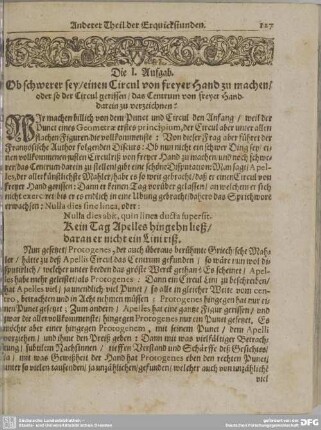 Anderer Theil der Erquickstunden. 127
Die I. Aufgab.
Ob schwerer sey/ einen Circul von freyer Hand zu machen/
oder so der Circul gerissen/ das Centrum von freyer Hand
darein zu verzeichnen?
Wir machen billich von dem Punct und Circul den Anfang/ weil der
Punct eines Geometræ erstes principium, der Circul aber unter allen
flachen Figuren die vollkommenste: Von dieser Frag aber führet der
Französische Author folgenden Discurs: Ob nun nicht ein schwer Ding sey/ ei-
nen vollkommenen runden Circulriß von freyer Hand zu machen und noch schwe-
rer/ das Centrum darein zu stellen/ gibt eine schöne Disputation: Man sagt/ Apel-
les der allerkünstlichste Mahler/ habe es so weit gebracht/ daß er einen Circul von
freyer Hand gerissen: Dann er keinen Tag vorüber gelassen/ an welchem er sich
nicht exercirt biß er es endlich in eine Übung gebracht/ dahero das Sprichwort
erwachsen: Nulla dies sine linea, oder:
Nulla dies abit, quin linea ducta supersit.
Kein Tag Apelles hingehn ließ/
daran er nicht ein Lini riß.
Nun gesetzt/ Protogenes, der auch überaus berühmte Griechische Mah-
ler/ hätte zu deß Apellis Circul das Centrum gefunden/ so wäre nun wol di-
sputierlich/ welcher unter beeden das größte Werck gethan? Es scheinet/ Apel-
les habe mehr geleistet/ als Protogenes: Dann ein Circul Lini zu beschreiben/
hat Apelles viel/ ja unendlich viel Punct/ so alle in gleicher Weite vom cen-
tro, betrachten und in Acht nehmen müssen: Protogenes hingegen hat nur ei-
nen Punct gesetzt; Zum andern/ Apelles hat eine gantze Figur gerissen/ und
zwar die aller vollkommenste; hingegen Protogenes nur ein Punct gesetzt. Es
möchte aber einer hingegen Protogenem, mit seinem Punct/ dem Apelli
vorziehen/ und ihme den Preiß geben: Dann mit was vielfältiger Betrach-
tung/ subtilem Nachsinnen/ tieffen Verstand und Schärffe deß Gesichtes/
ja/ mit was Gewißheit der Hand hat Protogenes eben den rechten Punct/
unter so vielen tausenden/ ja unzählichen/ gefunden/ welcher auch von unzählich
viel